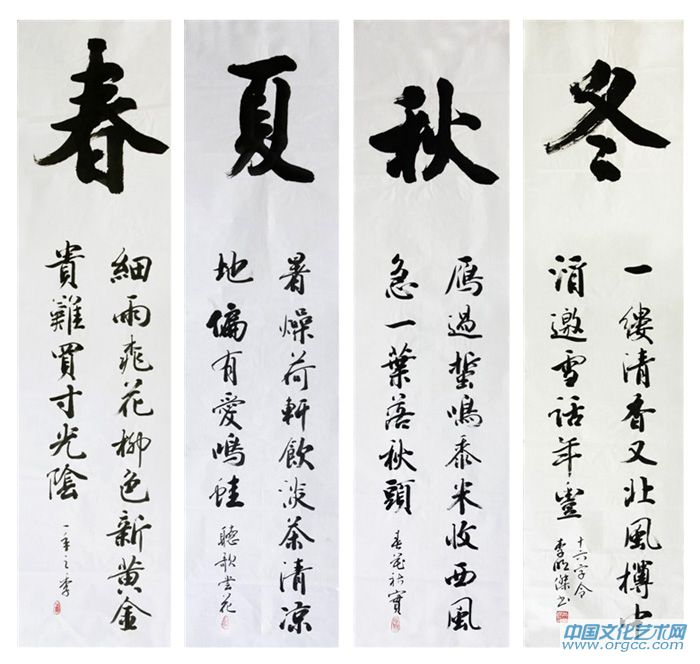 春
細雨桃花柳色新黄金
貴難買寸光陰
一年之季
夏
暑燥荷軒飲淡茶清凉
地偏有愛鳴蛙
聽歌賞花
秋
雁過蛩鳴黍米收西風
急一葉落秋頭
春花秋實
冬
一縷清香又北風樽
邀雪話年豐
十六字令
李明傑书
中国文化艺术网
www.orgcc.com